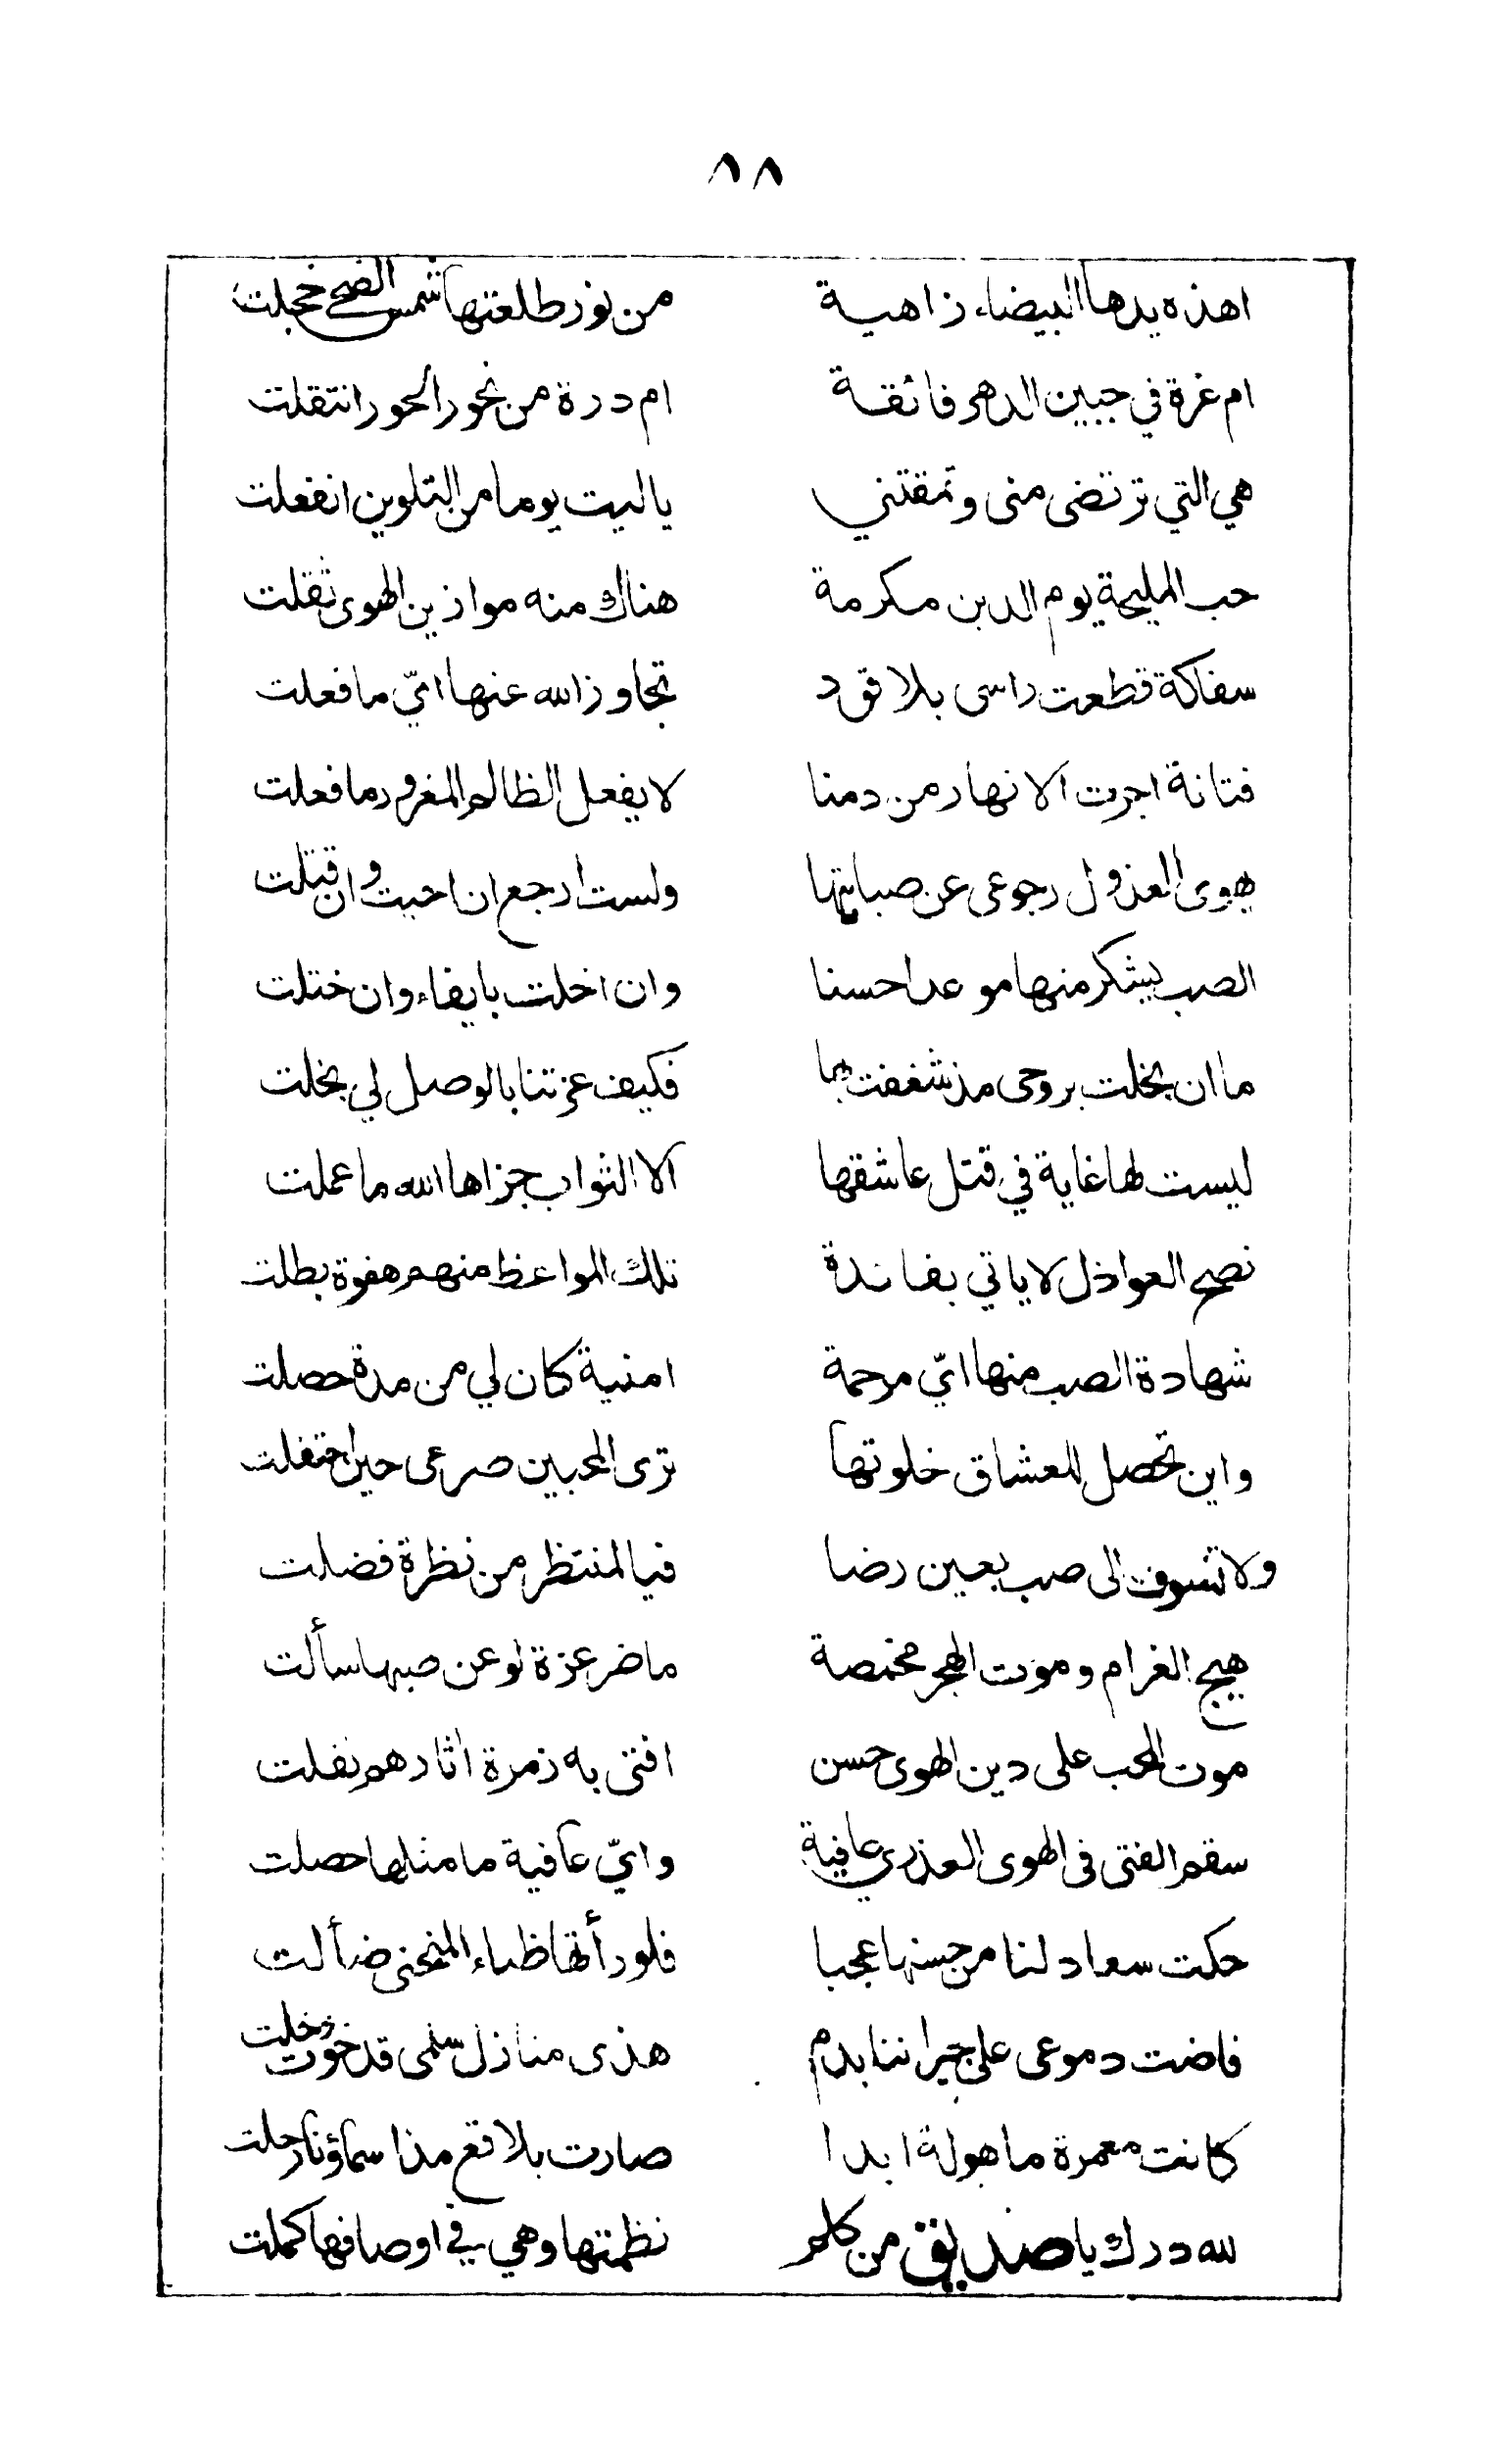 ٨٨
اهذه يدها البيضاء زاهية من نور طلعتها شمس الضحى خجلت
ام غرة في جبين الدهر فائقة ام درة من نحور الحور انتقلت
هي التي ترتضى منى وتمقتني ياليت يوما من التلوين انفعلت
حب المليحة يوم الدين مكرمة هناك منه موازين الهوى ثقلت
سفاكة قطعت راسى بلا قود تجاوز الله عنها اىّ ما فعلت
فتانة اجرت الانهار من دمنا لا يفعل الظالم المغرور ما فعلت
يهوى العذول رجوعى عن صبابتها ولست ارجع ان احيت وان قتلت
الصب يشكر منها موعدا حسنا وان اخلت بايفاء وان ختلت
ما ان بخلت بروحى مذ شغفت بها فكيف عزتنا بالوصل لي بخلت
ليست لها غاية في قتل عاشقها الا الثواب جزاها الله ما عملت
نصح العواذل لا ياتي بفائدة تلك المواعظ منهم هفوة بطلت
شهادة الصب منها اىّ مرحمة امنية كان لي من مدة حصلت
واين تحصل للعشاق خلوتها ترى المحبين صرعى حين احتفلت
ولا تسوف الى صب بعين رضا فيا لمنتظر من نظرة فضلت
هيج الغرام وموت الهجر مخمصة ما ضر عزة لو عن صبها سألت
موت المحب على دين الهوى حسن افتى به زمرة اثارهم نفلت
سقم الفتى فى الهوى العذري عافية واىّ عافية ما مثلها حصلت
حكت سعاد لنا من حسنها عجبا فلو رأتها ظباء المنحنى ضألت
فاضت دموعى على جيراننا بدم هذى منازل سلمى قد خوت وخلت
كانت معمرة ماهولة ابدا صارت بلاقع مذ اسماؤنا رحلت
لله درك يا صديق من كلم نظمتها وهي في اوصافها كملت